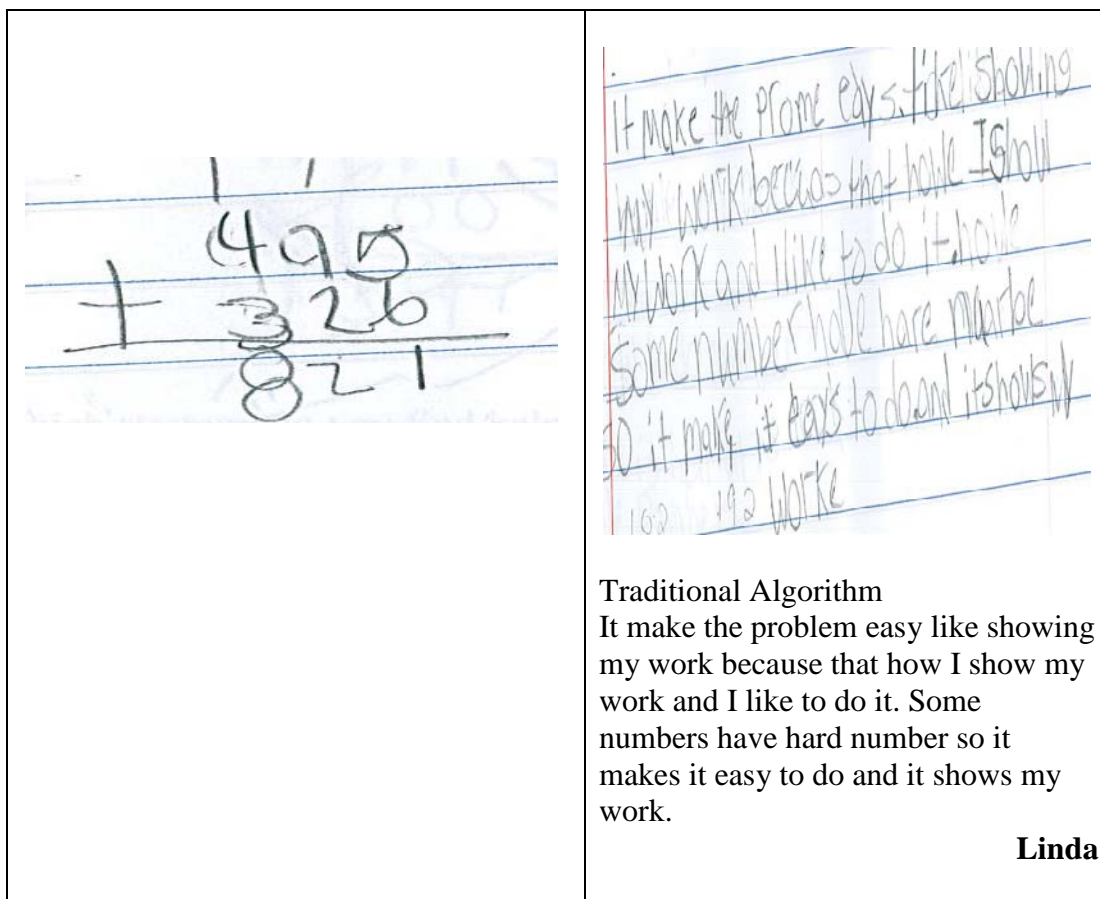 1 1
495
+ 326
821
It make the Prome eays. like showing
my work becuas that howe I Show
my work and I like to do it. howe
Some number have hare
so it make it eays to do and it shows my
192 Worke
Traditional Algorithm
It make the problem easy like showing
my work because that how I show my
work and I like to do it. Some
numbers have hard number so it
makes it easy to do and it shows my
work.
Linda